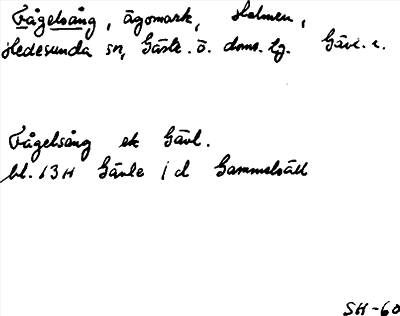 Fågelsång, ägomark, Holmen,
Hedesunda sn, Gästr. ö. doms. lg. Gävl. l.
Fågelsång ek Gävl.
bl. 13H Gävle 1 d Gammelsätt
SH-60